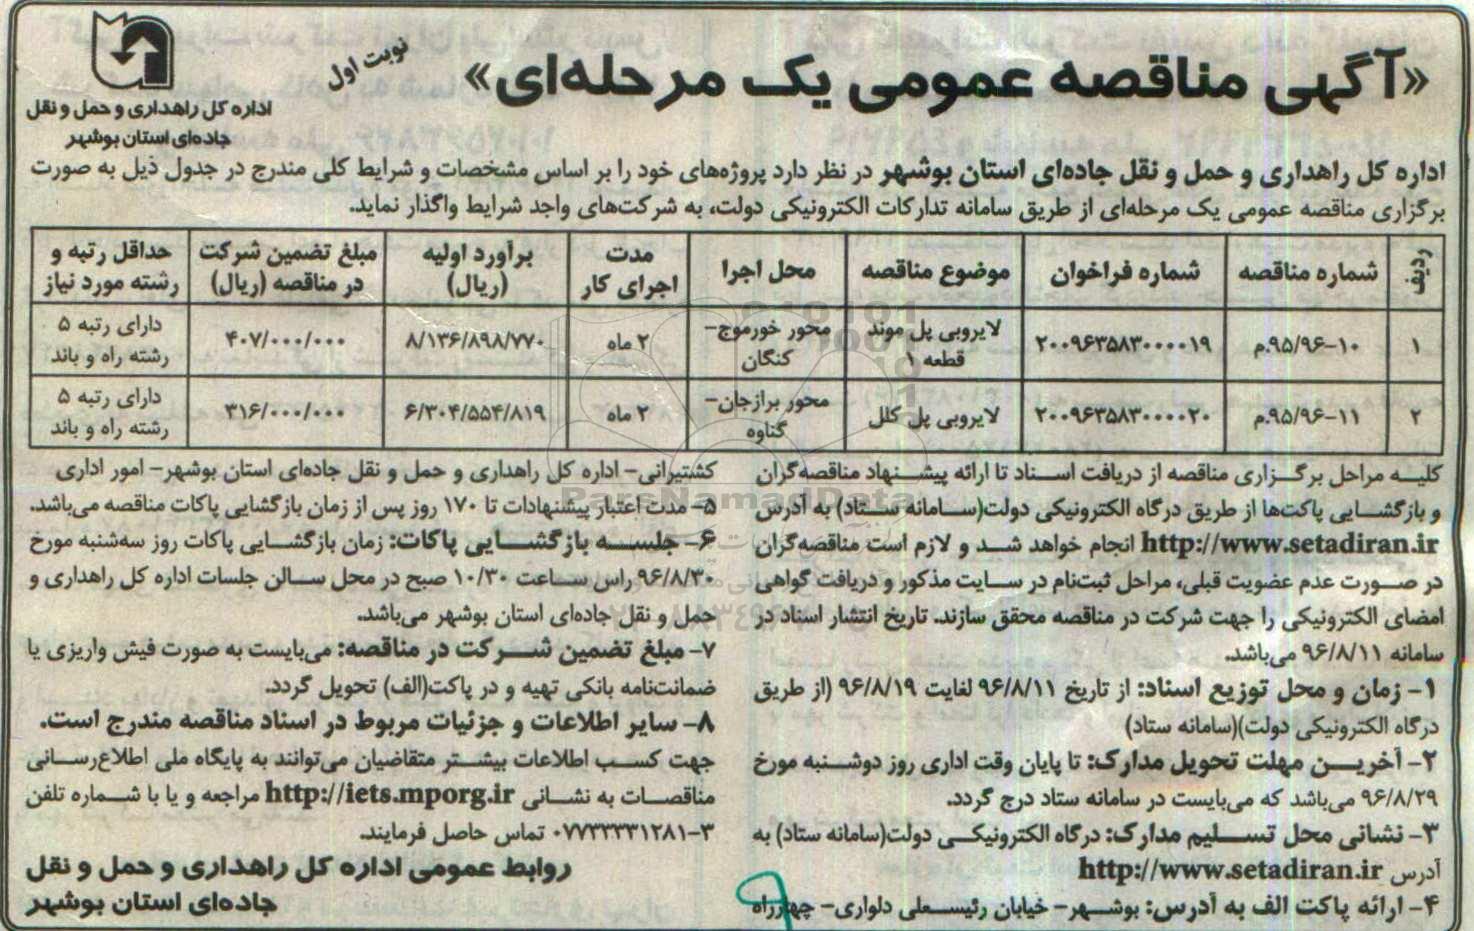 «آگهی مناقصه عمومی یک مرحله‌ای»
نوبت اول
اداره کل راهداری و حمل و نقل
جاده‌ای استان بوشهر
اداره کل راهداری و حمل و نقل جاده‌ای استان بوشهر در نظر دارد پروژه‌های خود را بر اساس مشخصات و شرایط کلی مندرج در جدول ذیل به صورت
برگزاری مناقصه عمومی یک مرحله‌ای از طریق سامانه تدارکات الکترونیکی دولت، به شرکت‌های واجد شرایط واگذار نماید.
ردیف | شماره مناقصه | شماره فراخوان | موضوع مناقصه | محل اجرا | مدت اجرای کار | برآورد اولیه (ریال) | مبلغ تضمین شرکت در مناقصه (ریال) | حداقل رتبه و رشته مورد نیاز
۱ | ۱۰-۹۵/۹۶.م | ۲۰۰۹۶۳۵۸۳۰۰۰۰۱۹ | لایروبی پل موند قطعه ۱ | محور خورموج- کنگان | ۲ ماه | ۸/۱۳۶/۸۹۸/۷۷۰ | ۴۰۷/۰۰۰/۰۰۰ | دارای رتبه ۵ رشته راه و باند
۲ | ۱۱-۹۵/۹۶.م | ۲۰۰۹۶۳۵۸۳۰۰۰۰۲۰ | لایروبی پل کلل | محور برازجان- گناوه | ۲ ماه | ۶/۳۰۴/۵۵۴/۸۱۹ | ۳۱۶/۰۰۰/۰۰۰ | دارای رتبه ۵ رشته راه و باند
کلیه مراحل برگزاری مناقصه از دریافت اسناد تا ارائه پیشنهاد مناقصه‌گران
و بازگشایی پاکت‌ها از طریق درگاه الکترونیکی دولت(سامانه ستاد) به آدرس
http://www.setadiran.ir انجام خواهد شد و لازم است مناقصه‌گران
در صورت عدم عضویت قبلی، مراحل ثبت‌نام در سایت مذکور و دریافت گواهی
امضای الکترونیکی را جهت شرکت در مناقصه محقق سازند. تاریخ انتشار اسناد در
سامانه ۹۶/۸/۱۱ می‌باشد.
۱- زمان و محل توزیع اسناد: از تاریخ ۹۶/۸/۱۱ لغایت ۹۶/۸/۱۹ (از طریق
درگاه الکترونیکی دولت)(سامانه ستاد)
۲- آخرین مهلت تحویل مدارک: تا پایان وقت اداری روز دوشنبه مورخ
۹۶/۸/۲۹ می‌باشد که می‌بایست در سامانه ستاد درج گردد.
۳- نشانی محل تسلیم مدارک: درگاه الکترونیکی دولت(سامانه ستاد) به
آدرس http://www.setadiran.ir
۴- ارائه پاکت الف به آدرس: بوشهر- خیابان رئیسعلی دلواری- چهارراه
کشتیرانی- اداره کل راهداری و حمل و نقل جاده‌ای استان بوشهر- امور اداری
۵- مدت اعتبار پیشنهادات تا ۱۷۰ روز پس از زمان بازگشایی پاکات مناقصه می‌باشد.
۶- جلسه بازگشایی پاکات: زمان بازگشایی پاکات روز سه‌شنبه مورخ
۹۶/۸/۳۰ راس ساعت ۱۰/۳۰ صبح در محل سالن جلسات اداره کل راهداری و
حمل و نقل جاده‌ای استان بوشهر می‌باشد.
۷- مبلغ تضمین شرکت در مناقصه: می‌بایست به صورت فیش واریزی یا
ضمانت‌نامه بانکی تهیه و در پاکت(الف) تحویل گردد.
۸- سایر اطلاعات و جزئیات مربوط در اسناد مناقصه مندرج است.
جهت کسب اطلاعات بیشتر متقاضیان می‌توانند به پایگاه ملی اطلاع‌رسانی
مناقصات به نشانی http://iets.mporg.ir مراجعه و یا با شماره تلفن
۰۷۷۳۳۳۳۱۲۸۱-۳ تماس حاصل فرمایند.
روابط عمومی اداره کل راهداری و حمل و نقل
جاده‌ای استان بوشهر
ParsNamadData